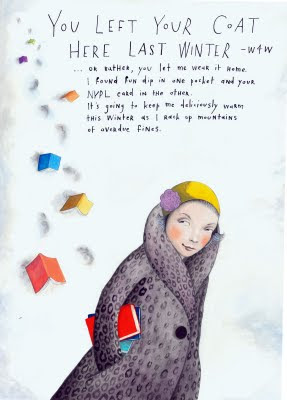 YOU LEFT YOUR COAT
HERE LAST WINTER -W4W
... OR RATHER, YOU LET ME WEAR IT HOME.
I FOUND FUN DIP IN ONE POCKET AND YOUR
NYPL CARD IN THE OTHER.
IT'S GOING TO KEEP ME DELICIOUSLY WARM
THIS WINTER AS I RACK UP MOUNTAINS
OF OVERDUE FINES.